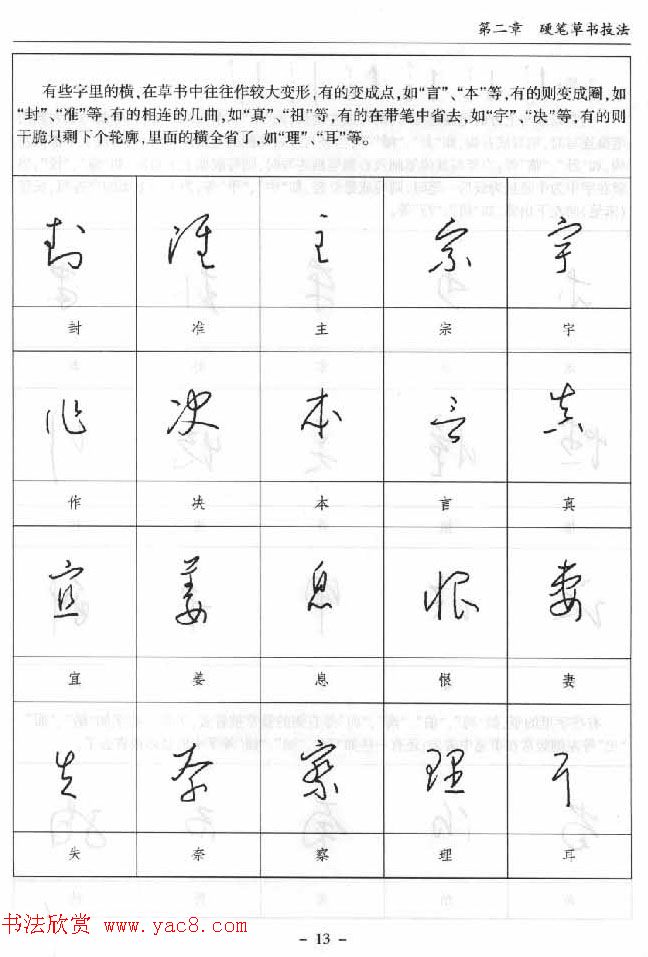 第二章 硬笔草书技法
有些字里的横,在草书中往往作较大变形,有的变成点,如“言”、“本”等,有的则变成圈,如
“封”、“准”等,有的相连的几曲,如“真”、“祖”等,有的在带笔中省去,如“宇”、“决”等,有的则
干脆只剩下个轮廓,里面的横全省了,如“理”、“耳”等。
封 准 主 宗 宇
封 准 主 宗 宇
作 决 本 言 真
作 决 本 言 真
宜 姜 息 恨 妻
宜 姜 息 恨 妻
失 奈 察 理 耳
失 奈 察 理 耳
书法欣赏 www.yac8.com
- 13 -